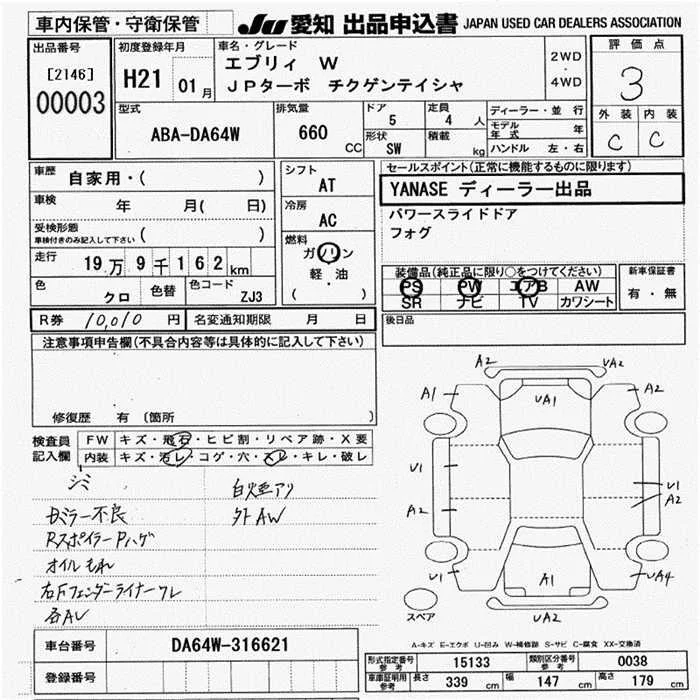 車内保管・守衛保管
JU 愛知 出品申込書 JAPAN USED CAR DEALERS ASSOCIATION
出品番号
[2146]
00003
初度登録年月
H21 01月
車名・グレード
エブリィ W
JPターボ チクゲンテイシャ
2WD
・
4WD
評価点
3
外装 内装
C C
型式
ABA-DA64W
排気量
660 CC
ドア
5
定員
4 人
形状
SW
積載
kg
ディーラー・並行
モデル年式 年
ハンドル 左・右
車歴
自家用・( )
車検 年 月( 日)
受検形態
車検付きのみ記入して下さい ( )
走行 19万9千162km
色 クロ 色替 色コード ZJ3
シフト
AT
冷房
AC
燃料
ガソリン
軽・油
( )
セールスポイント(正常に機能するものに限ります)
YANASE ディーラー出品
パワースライドドア
フォグ
装備品(純正品に限り○をつけてください)
PS PW エアB AW
SR ナビ TV カワシート
新車保証書
有・無
R券 10,010 円 名変通知期限 月 日
後日品
注意事項申告欄(不具合内容等は具体的に記入して下さい)
修復歴 有 〔箇所
検査員
記入欄
FW キズ・飛石・ヒビ割・リペア跡・X要
内装 キズ・汚レ・コゲ・穴・スレ・キレ・破レ
シミ
白煙アリ
Bミラー不良
外AW
Rスポイラー Pハゲ
オイルもれ
右Fフェンダーライナーワレ
各AU
A2 UA2
A1 UA1 A2
U1 U1
A2 A2
U1 A1 UA4
UA2
スペア
A-キズ E-エクボ U-凹み W-補修跡 S-サビ C-腐食 XX-交換済
車台番号 DA64W-316621
登録番号
形式指定番号 参考 15133 類別区分番号 参考 0038
車庫証明用 参考 長さ 339 cm 幅 147 cm 高さ 179 cm